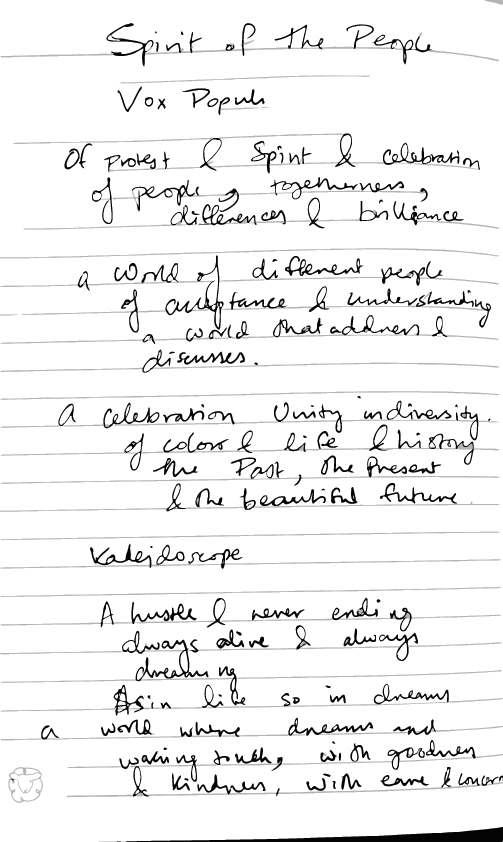 Spirit of the People
Vox Populi
Of Protest & Spirit & celebration
of people, togetherness,
differences & brilliance
a world of different people
of acceptance & understanding
a world that address &
discusses.
A celebration Unity in diversity.
of color & life & history
the Past, the Present
& the beautiful future.
Kaleidoscope
A hustle & never ending
always alive & always
dreaming
As in life so in dreams
a world where dreams and
waking touch, with goodness
& kindness, with care & concern